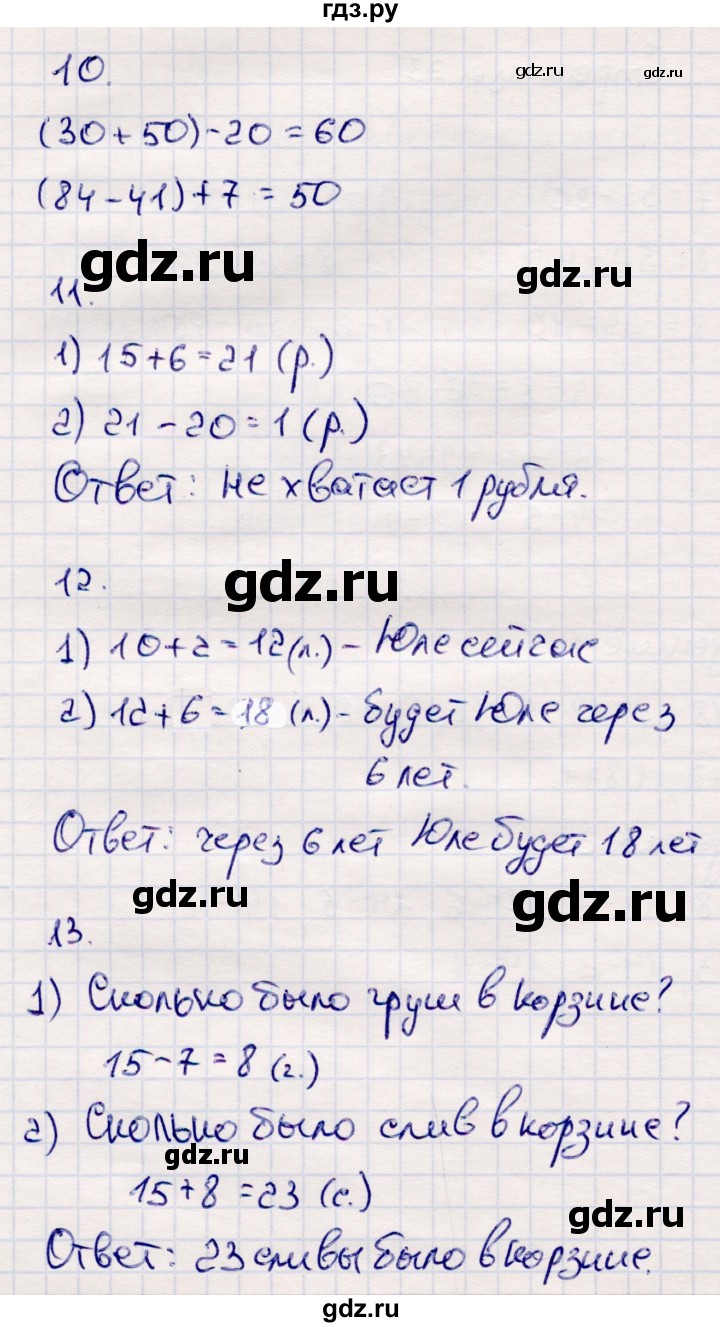 гдз.ру
10.
gdz.ru
gdz.ru
(30+50)-20=60
(84-41)+7=50
gdz.ru
gdz.ru
11.
1) 15+6=21 (р.)
2) 21-20=1 (р.)
Ответ: не хватает 1 рубля.
gdz.ru
12.
1) 10+2=12(л.) - Юле сейчас
2) 12+6=18 (л.) - будет Юле через
6 лет.
Ответ: через 6 лет Юле будет 18 лет
gdz.ru
gdz.ru
13.
1) Сколько было груш в корзине?
15-7=8 (г.)
2) Сколько было слив в корзине?
gdz.ru
15+8=23 (с.)
gdz.ru
Ответ: 23 сливы было в корзине.
gdz.ru